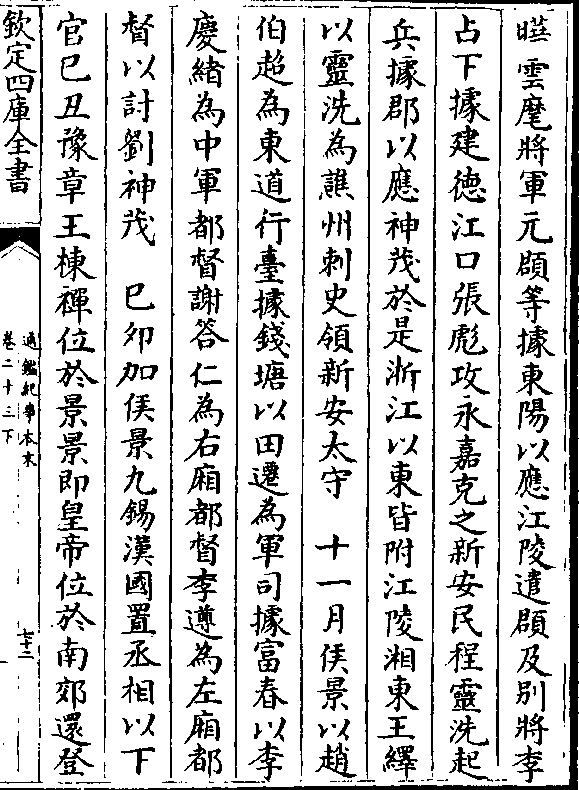 㬢雲麾將軍元頵等據東陽以應江陵遣頵及別將李
占下據建德江口張彪攻永嘉克之新安民程靈洗起
兵據郡以應神茂於是浙江以東皆附江陵湘東王繹
以靈洗為譙州刺史領新安太守　十一月侯景以趙
伯超為東道行臺據錢塘以田遷為軍司據富春以李
慶緒為中軍都督謝答仁為右廂都督李遵為左廂都
督以討劉神茂　己夘加侯景九錫漢國置丞相以下
官己丑豫章王棟禪位於景景即皇帝位於南郊還登
欽定四庫全書
通鑑紀事本末
卷二十三下
七十二